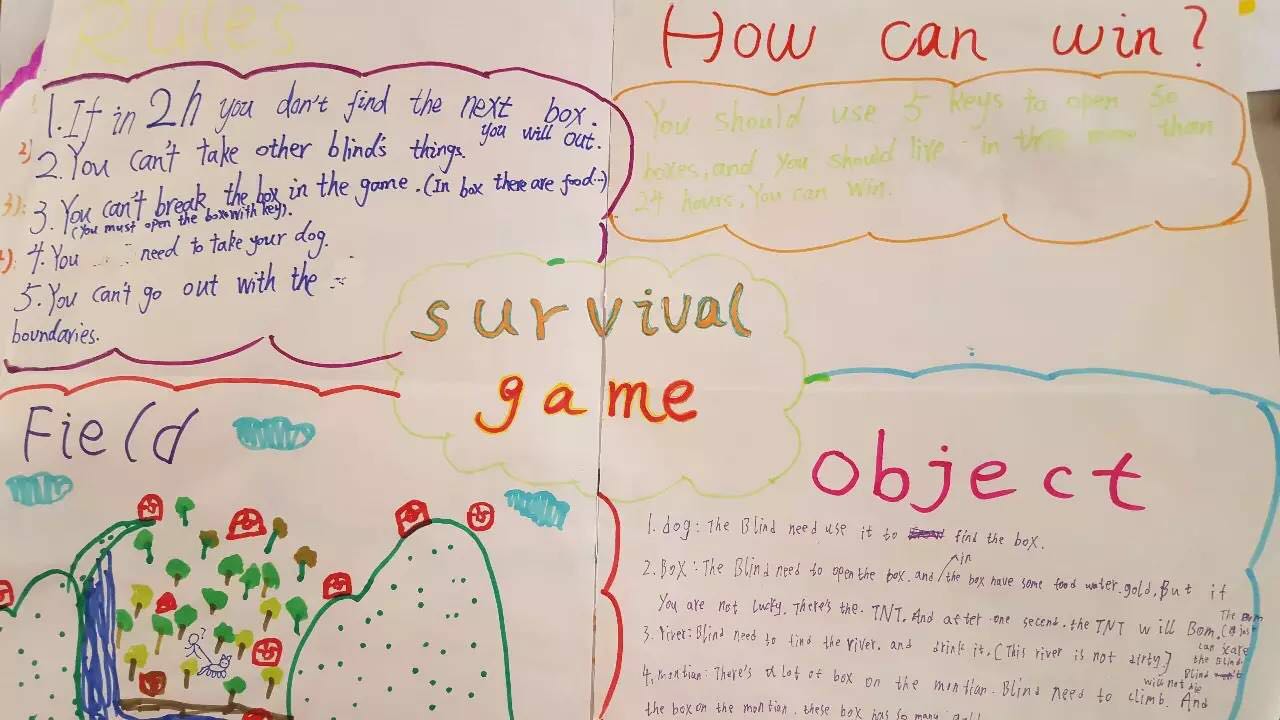 Rules
1. If in 2h you don't find the next box.
you will out.
2) 2. You can't take other blind's things.
3): 3. You can't break the box in the game. (In box there are food..)
(You must open the box with key).
4. You need to take your dog.
5. You can't go out with the
boundaries.
How can win?
You should use 5 keys to open 50
boxes, and you should live in than
24 hours, You can win.
survival
game
Field
Object
1. dog: The Blind need use it to find the box.
2. Box: The Blind need to open the box. and /in the box have some food water. gold. But if
You are not lucky. There's the TNT. And after one second. the TNT will Bom.
The Bom
can scare
the Blind
Blind
will not die
3. river: Blind need to find the river. and drink it. (This river is not dirty)
4. montian: There's a lot of box on the montian. Blind need to climb. And
the box on the montian. these box has so many